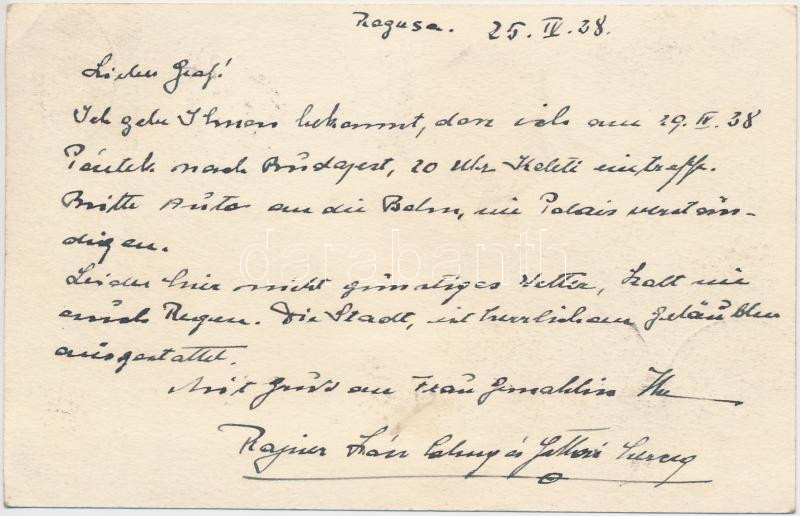 Ragusa. 25. IV. 38.
Lieber Graf!
Ich gebe Ihnen bekannt, dass ich am 29. IV. 38
Péntek nach Budapest, 20 Uhr Keleti eintreffe.
Bitte Auto an die Bahn, wie Palais verstän-
digen.
Leider hier nicht günstiges Wetter, kalt wie
auch Regen. Die Stadt, ist herrlichen
ausgestattet.
Mit Gruss an Frau Gemahlin Ihr
Rajner
darabanth.com